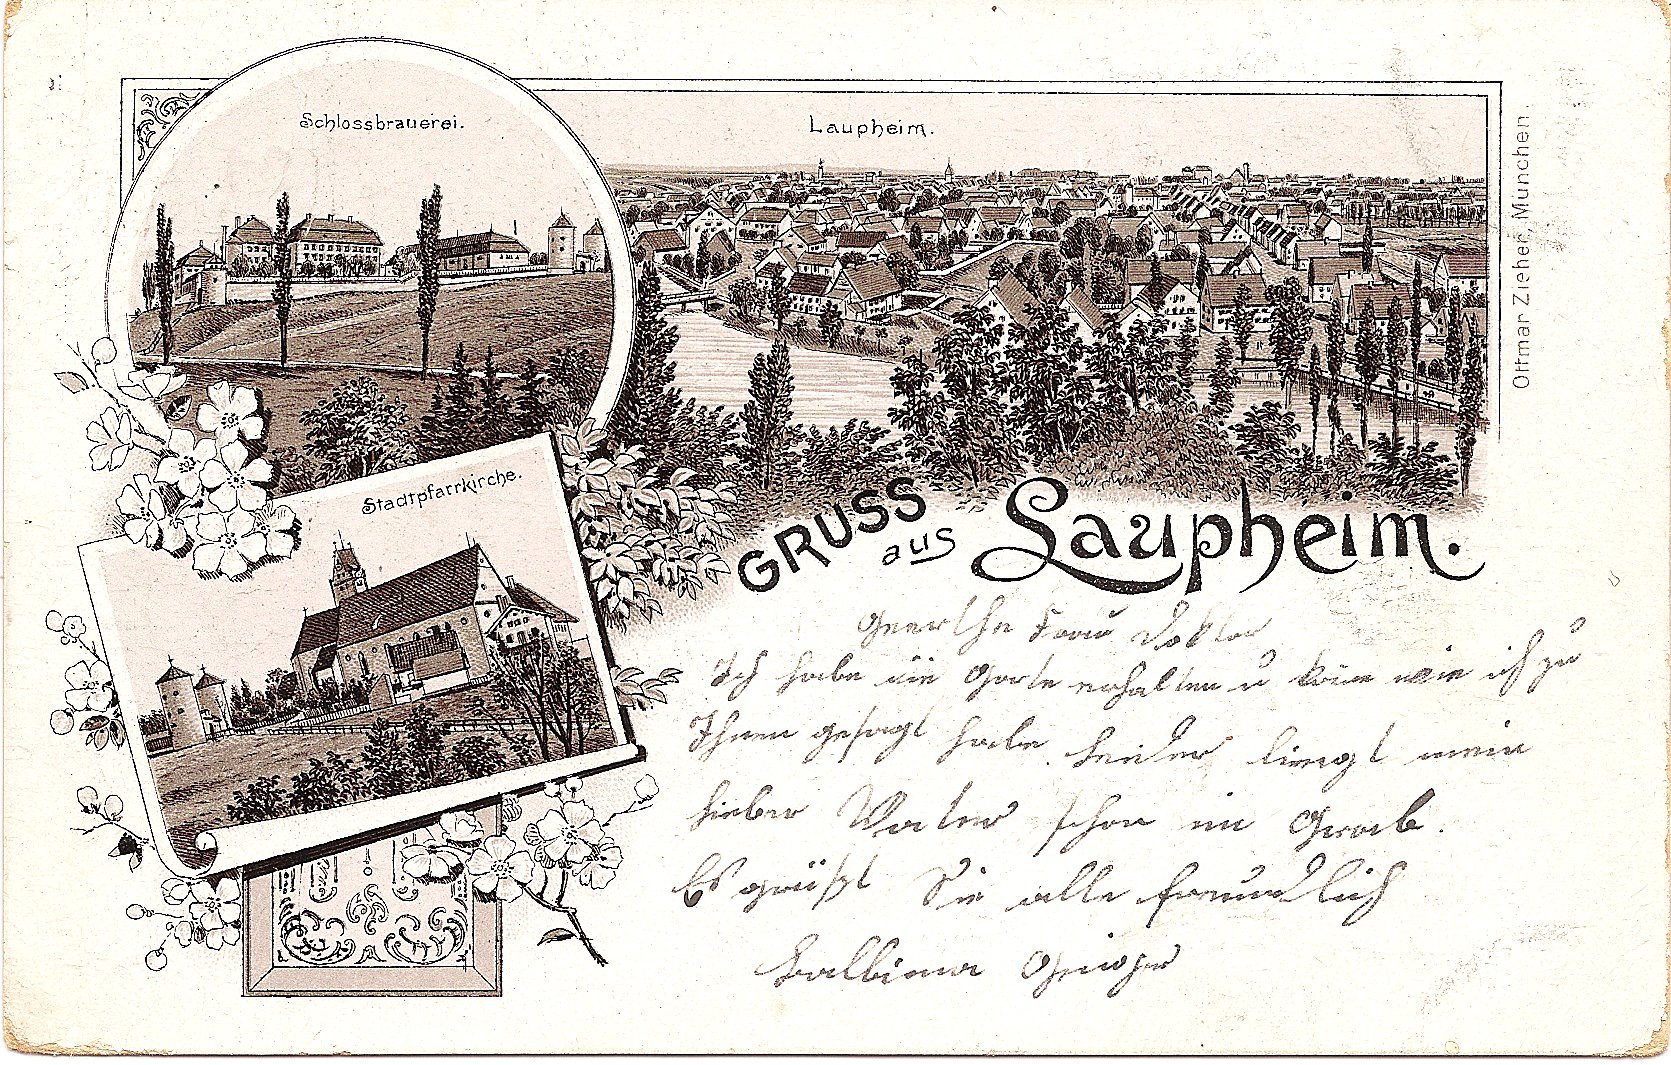 Schlossbrauerei.
Laupheim.
Ottmar Zieher, München.
Stadtpfarrkirche.
GRUSS
aus
Laupheim.
Geerthe Frau Doktor
Ich habe die Karte erhalten u wie ich zu
Ihnen gesagt habe. Leider liegt mein
lieber Vater schon im Grab.
Es grüßt Sie alle freundlich
Balbina Geiger